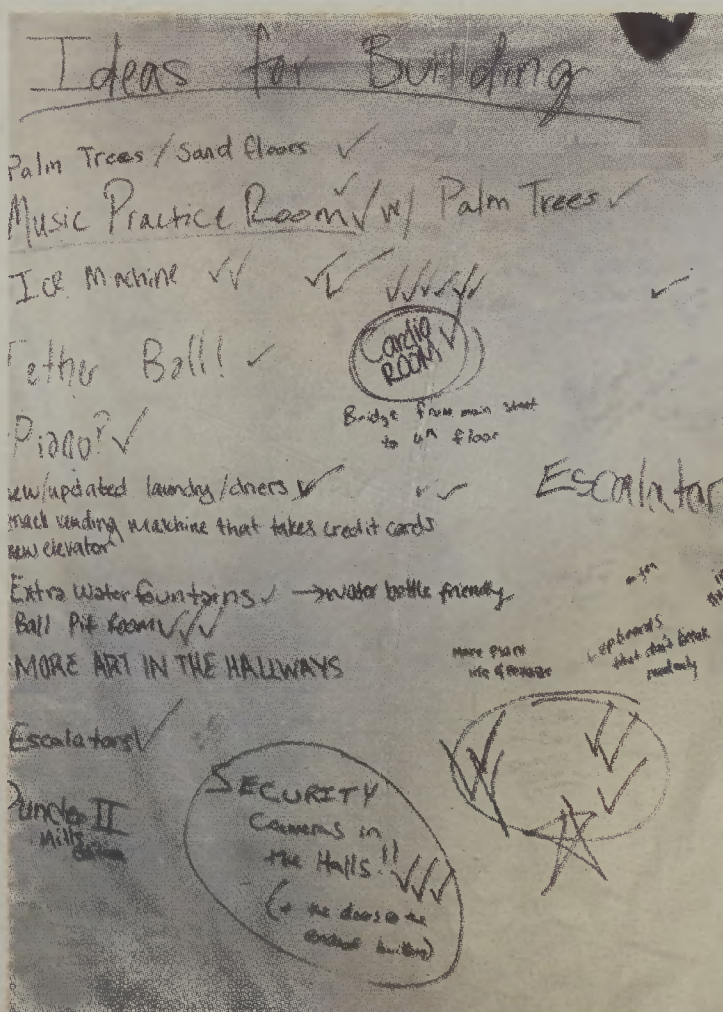 Ideas for Building
Palm Trees / Sand floors ✓
Music Practice Room ✓✓ w/ Palm Trees ✓
Ice Machine ✓✓ ✓✓ ✓✓✓✓✓✓ ✓
Tether Ball! ✓
Cardio
ROOM ✓
Bridge from main street
to 4th floor
Piano? ✓
new/updated laundry/driers ✓ ✓✓
Escalator
snack vending machine that takes credit cards
new elevator
Extra Water fountains ✓ → water bottle friendly
Ball Pit Room ✓✓✓
MORE ART IN THE HALLWAYS
More Plant
life
that don't break
Escalators ✓
II
SECURITY
Cameras in
the Halls!! ✓✓✓
(+ the doors